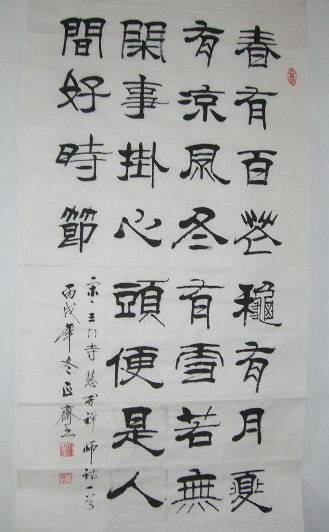 春有百花龝有月夏
有涼風冬有雪若無
閑事掛心頭便是人
間好時節
宋·王门寺慧开禅师诗一首
丙戌年冬正齋书